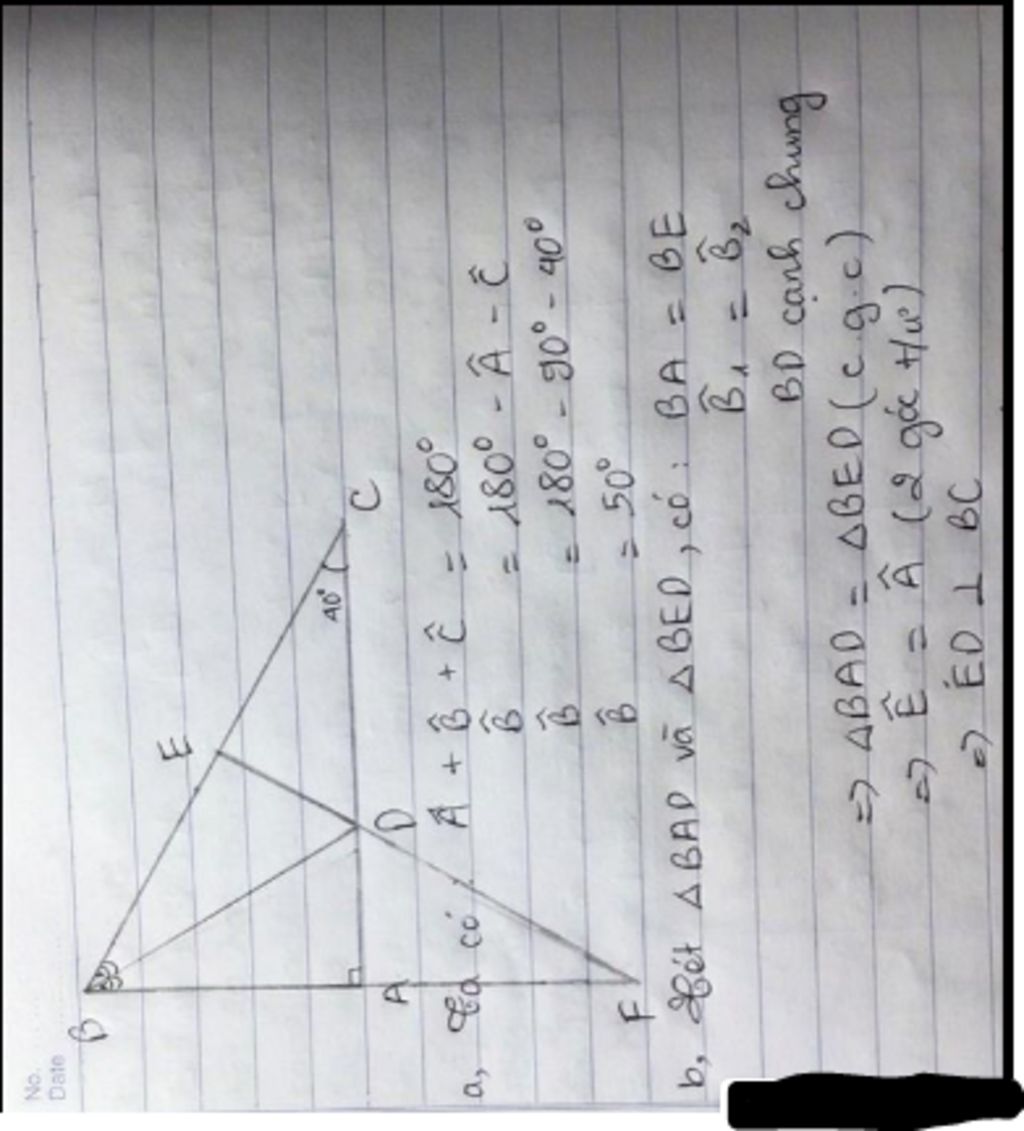 No.
Date
B
E
40°
C
A
D
F
a, Ta có: Â + B̂ + Ĉ = 180°
B̂ = 180° - Â - Ĉ
B̂ = 180° - 90° - 40°
B̂ = 50°
b, Xét ΔBAD và ΔBED, có: BA = BE
B̂₁ = B̂₂
BD cạnh chung
=> ΔBAD = ΔBED (c.g.c)
=> Ê = Â (2 góc t/ư)
=> ED ⊥ BC